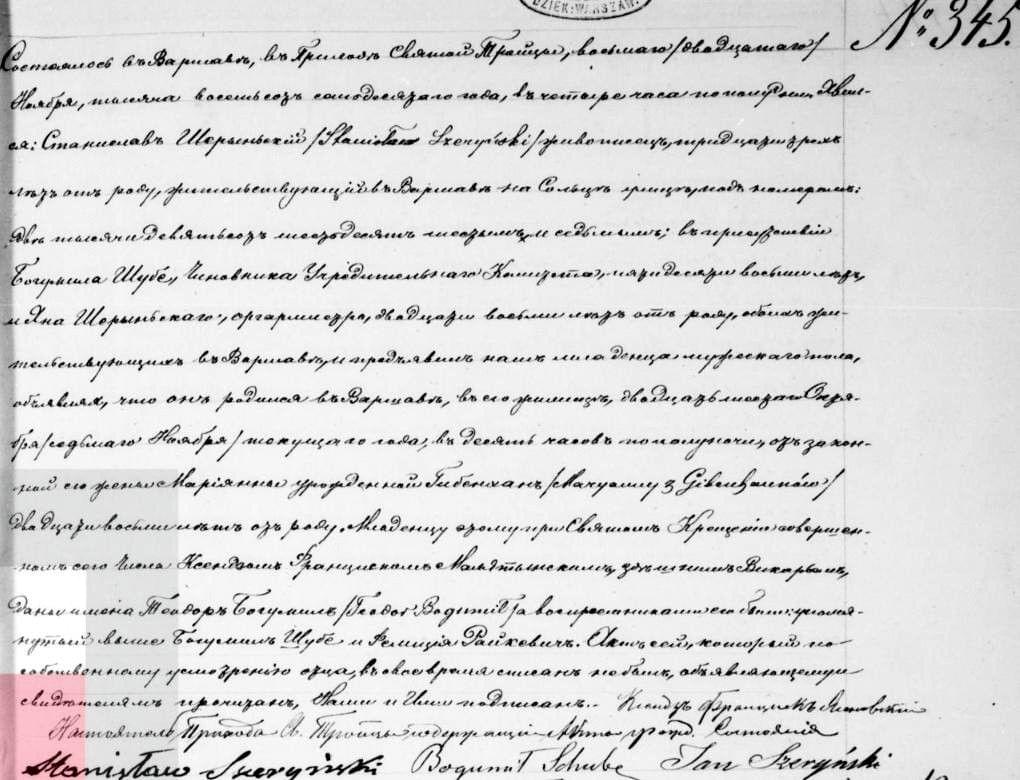 DZIEK: WARSZAW.
№ 345.
Состоялось въ Варшавѣ, въ Приходѣ Святой Троицы, восьмаго /двадцатаго/
Ноября, тысяча восемьсотъ семидесятаго года, въ четыре часа пополудни. Явил-
ся: Станиславъ Шерыньскій /Stanisław Szeryński/ живописецъ, тридцати трехъ
лѣтъ отъ роду, жительствующій въ Варшавѣ на Сольцѣ улицѣ, подъ номеромъ:
двѣ тысячи девятьсотъ шестьдесятъ и седьмымъ; въ присутствіи
Богумила Шубе, Чиновника Учредительнаго Комитета, пятидесяти восьми лѣтъ,
и Яна Шерыньскаго, органмистра, двадцати восьми лѣтъ отъ роду, обоихъ жи-
тельствующихъ въ Варшавѣ, и предъявилъ намъ младенца мужескаго пола,
объявляя, что онъ родился въ Варшавѣ, въ его жилищѣ, двадцать шестаго Октя-
бря /седьмаго Ноября/ текущаго года, въ десять часовъ пополуночи, отъ закон-
ной его жены Маріянны урожденной Гибенханъ /Maryanny z
двадцати восьми лѣтъ отъ роду. Младенцу этому при Святомъ Крещеніи совершен-
номъ сего числа Ксендзомъ Францискомъ здѣшнимъ Викарымъ,
даны имена Теодоръ Богумилъ /Teodor Bogumił/ а воспріемниками его были: упомя-
нутый выше Богумилъ Шубе и Фелиція Райкевичъ. Актъ сей, который по
собственному усмотрѣнію отца, въ свое время списанъ не былъ, объявляющему и
свидѣтелямъ прочитанъ, Нами и Ими подписанъ. Ксендзъ Францискъ
Настоятель Прихода Св. Троицы Акты гражд. Состоянія
Stanisław Szeryński Bogumił Schube Jan Szeryński